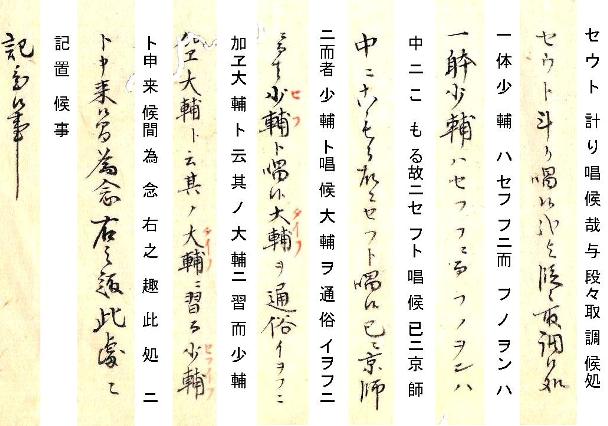 セウト計り唱候哉与段々取調候処
セウト斗り唱候哉与段々取調候処
一体少輔ハセフフニ而フノヲンハ
一躰少輔ハセフフニ而フノヲンハ
中ニこもる故ニセフト唱候已ニ京師
中ニこもる故ニセフト唱候已ニ京師
ニ而者少輔ト唱候大輔ヲ通俗イヲフニ
ニ而者少輔ト唱候大輔ヲ通俗イヲフニ
セフ
タイフ
加ヱ大輔ト云其ノ大輔ニ習而少輔
加ヱ大輔ト云其ノ大輔ニ習而少輔
タイフ
セフイフ
ト申来候間為念右之趣此処ニ
ト申来候間為念右之趣此処ニ
記置候事
記置候事